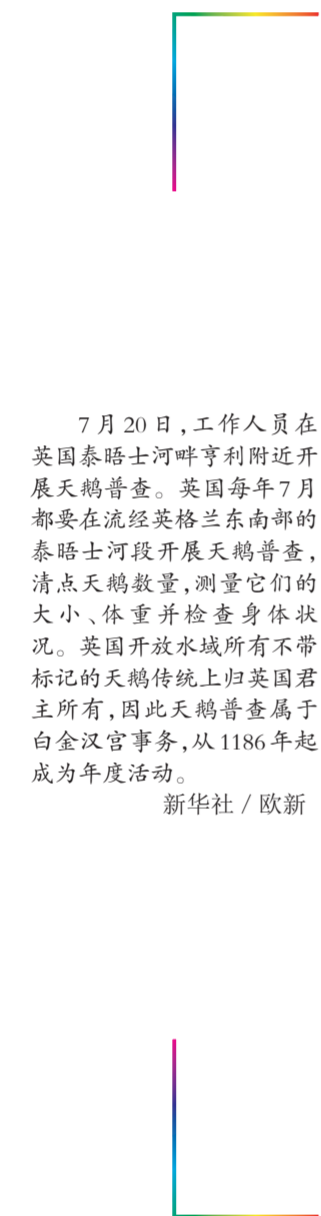 7月20日,工作人员在
英国泰晤士河畔亨利附近开
展天鹅普查。英国每年7月
都要在流经英格兰东南部的
泰晤士河段开展天鹅普查,
清点天鹅数量,测量它们的
大小、体重并检查身体状
况。英国开放水域所有不带
标记的天鹅传统上归英国君
主所有,因此天鹅普查属于
白金汉宫事务,从1186年起
成为年度活动。
新华社/欧新